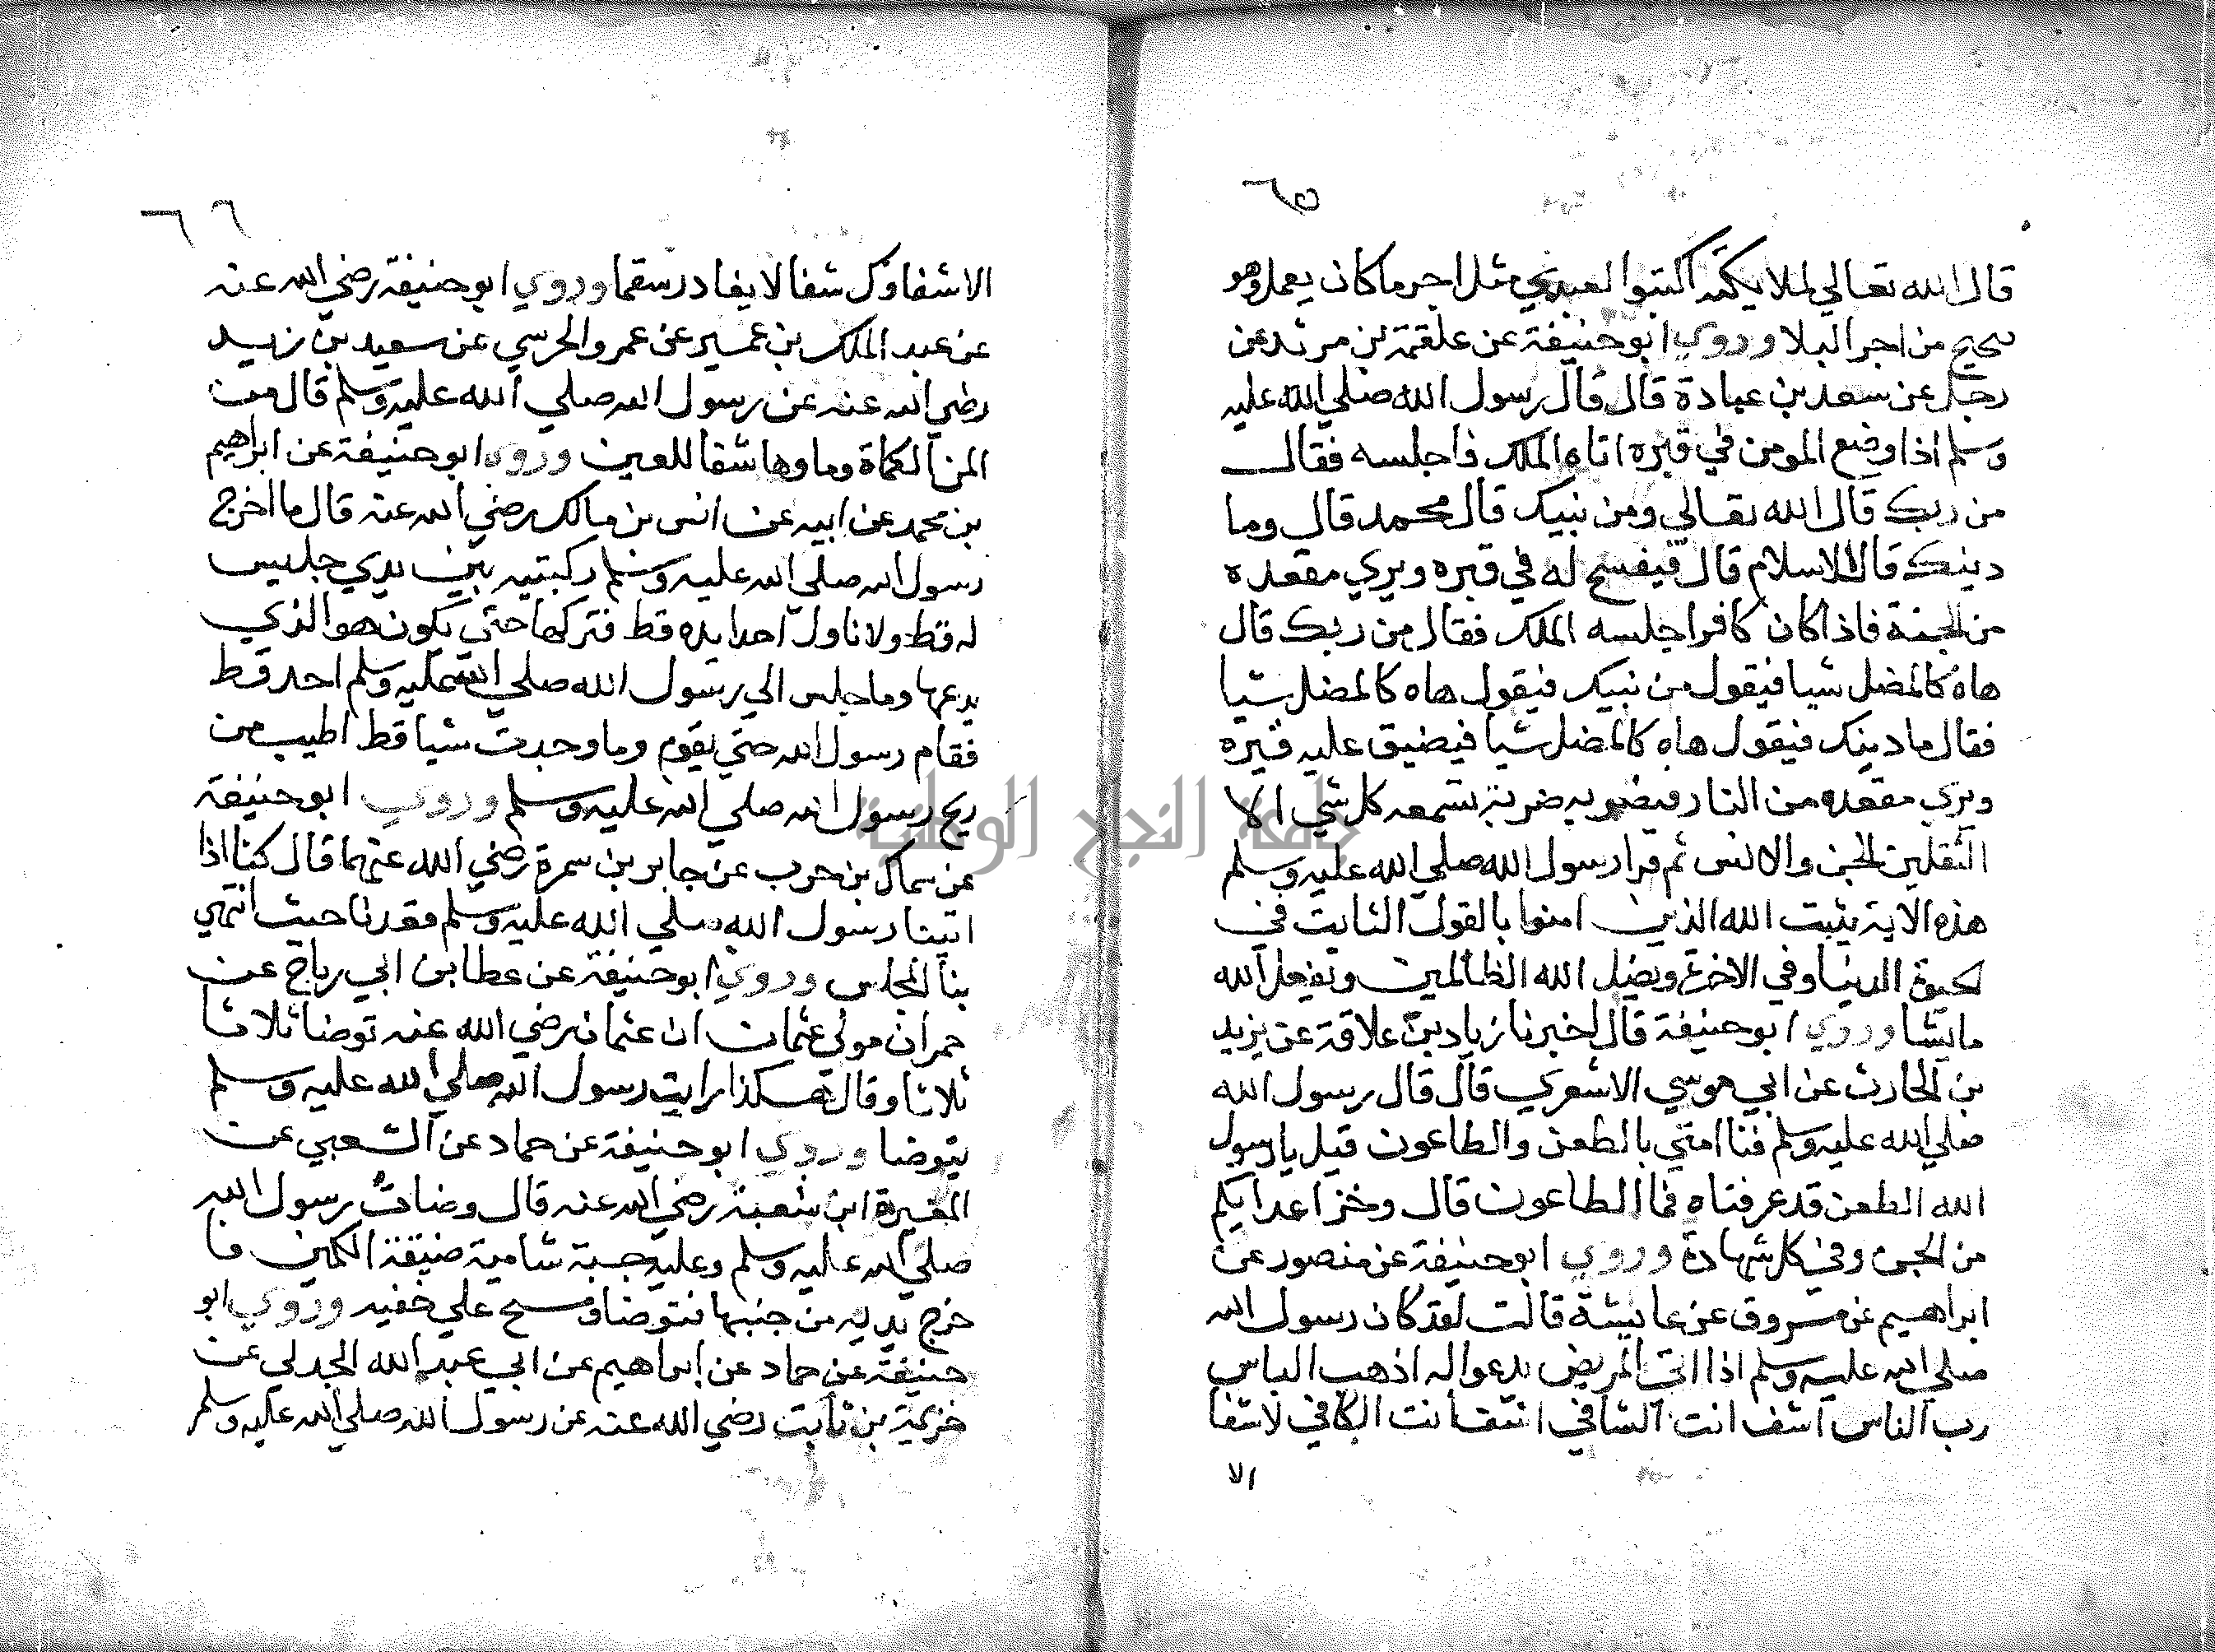 ٦٥
قال الله تعالي لملايكته اكتبوا لعبدي مثل اجر ما كان يعمل وهو
صحيح من اجر البلا وروي ابو حنيفة عن علقمة بن مرثد عن
رجل عن سعد بن عبادة قال قال رسول الله صلي الله عليه
وسلم اذا وضع المومن في قبره اتاه الملك فاجلسه فقال
من ربك قال الله تعالي ومن نبيك قال محمد قال وما
دينك قال الاسلام قال فيفسح له في قبره ويري مقعده
من الجنة فاذا كان كافرا جلسه الملك فقال من ربك قال
هاه كالمضل شيا فيقول من نبيك فيقول هاه كالمضل شيا
فقال ما دينك فيقول هاه كالمضل شيا فيضيق عليه قبره
ويري مقعده من النار فيضربه ضربة تسمعه كل شي الا
الثقلين الجن والانس ثم قرا رسول الله صلي الله عليه وسلم
هذه الاية يثبت الله الذين امنوا بالقول الثابت في
الحيوة الدنيا وفي الاخرة ويضل الله الظالمين ويفعل الله
ما يشا وروي ابو حنيفة قال اخبرنا زياد بن علاقة عن يزيد
بن الحارث عن ابي موسي الاشعري قال قال رسول الله
صلي الله عليه وسلم فنا امتي بالطعن والطاعون قيل يا رسول
الله الطعن قد عرفناه فما الطاعون قال وخز اعدايكم
من الجن وفي كل شهادة وروي ابو حنيفة عن منصور عن
ابراهيم عن مسروق عن عايشة قالت لقد كان رسول الله
صلي الله عليه وسلم اذا اتي المريض يدعوا له اذهب الباس
رب الناس اشف انت الشافي اشف انت الكافي لا شفا
الا
٦٦
الا شفاوك شفا لا يغادر سقما وروي ابو حنيفة رضي الله عنه
عن عبد الملك بن عمير عن عمرو الحرسي عن سعيد بن زيد
رضي الله عنه عن رسول الله صلي الله عليه وسلم قال من
المن الكماة وماوها شفا للعين وروي ابو حنيفة عن ابراهيم
بن محمد عن ابيه عن انس بن مالك رضي الله عنه قال ما اخرج
رسول الله صلي الله عليه وسلم ركبتيه بين يدي جليس
له قط ولا ناول احدا يده قط فتركها حتي يكون هو الذي
يدعها وما جلس الي رسول الله صلي الله عليه وسلم احد قط
فقام رسول الله حتي يقوم وما وجدت شيا قط اطيب من
ريح رسول الله صلي الله عليه وسلم وروي ابو حنيفة
عن سماك بن حرب عن جابر بن سمرة رضي الله عنهما قال كنا اذا
اتينا رسول الله صلي الله عليه وسلم فقعدنا حيث انتهي
بنا المجلس وروي ابو حنيفة عن عطا بن ابي رباح عن
حمران مولي عثمان ان عثمان رضي الله عنه توضا ثلاثا
ثلاثا وقال هكذا رايت رسول الله صلي الله عليه وسلم
يتوضا وروي ابو حنيفة عن حماد عن الشعبي عن
المغيرة ابن شعبة رضي الله عنه قال وضات رسول الله
صلي الله عليه وسلم وعليه جبة شامية ضيقة الكمين فا
خرج يديه من جنبها فتوضا ومسح علي خفيه وروي ابو
حنيفة عن حماد عن ابراهيم عن ابي عبد الله الجدلي عن
خزيمة بن ثابت رضي الله عنه عن رسول الله صلي الله عليه وسلم
جامعة النجاح الوطنية